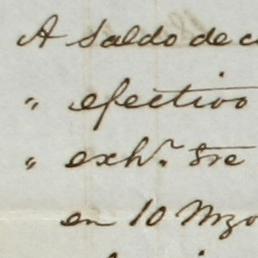 A Saldo de c
" efectivo
" exh.
en 10 Mzo